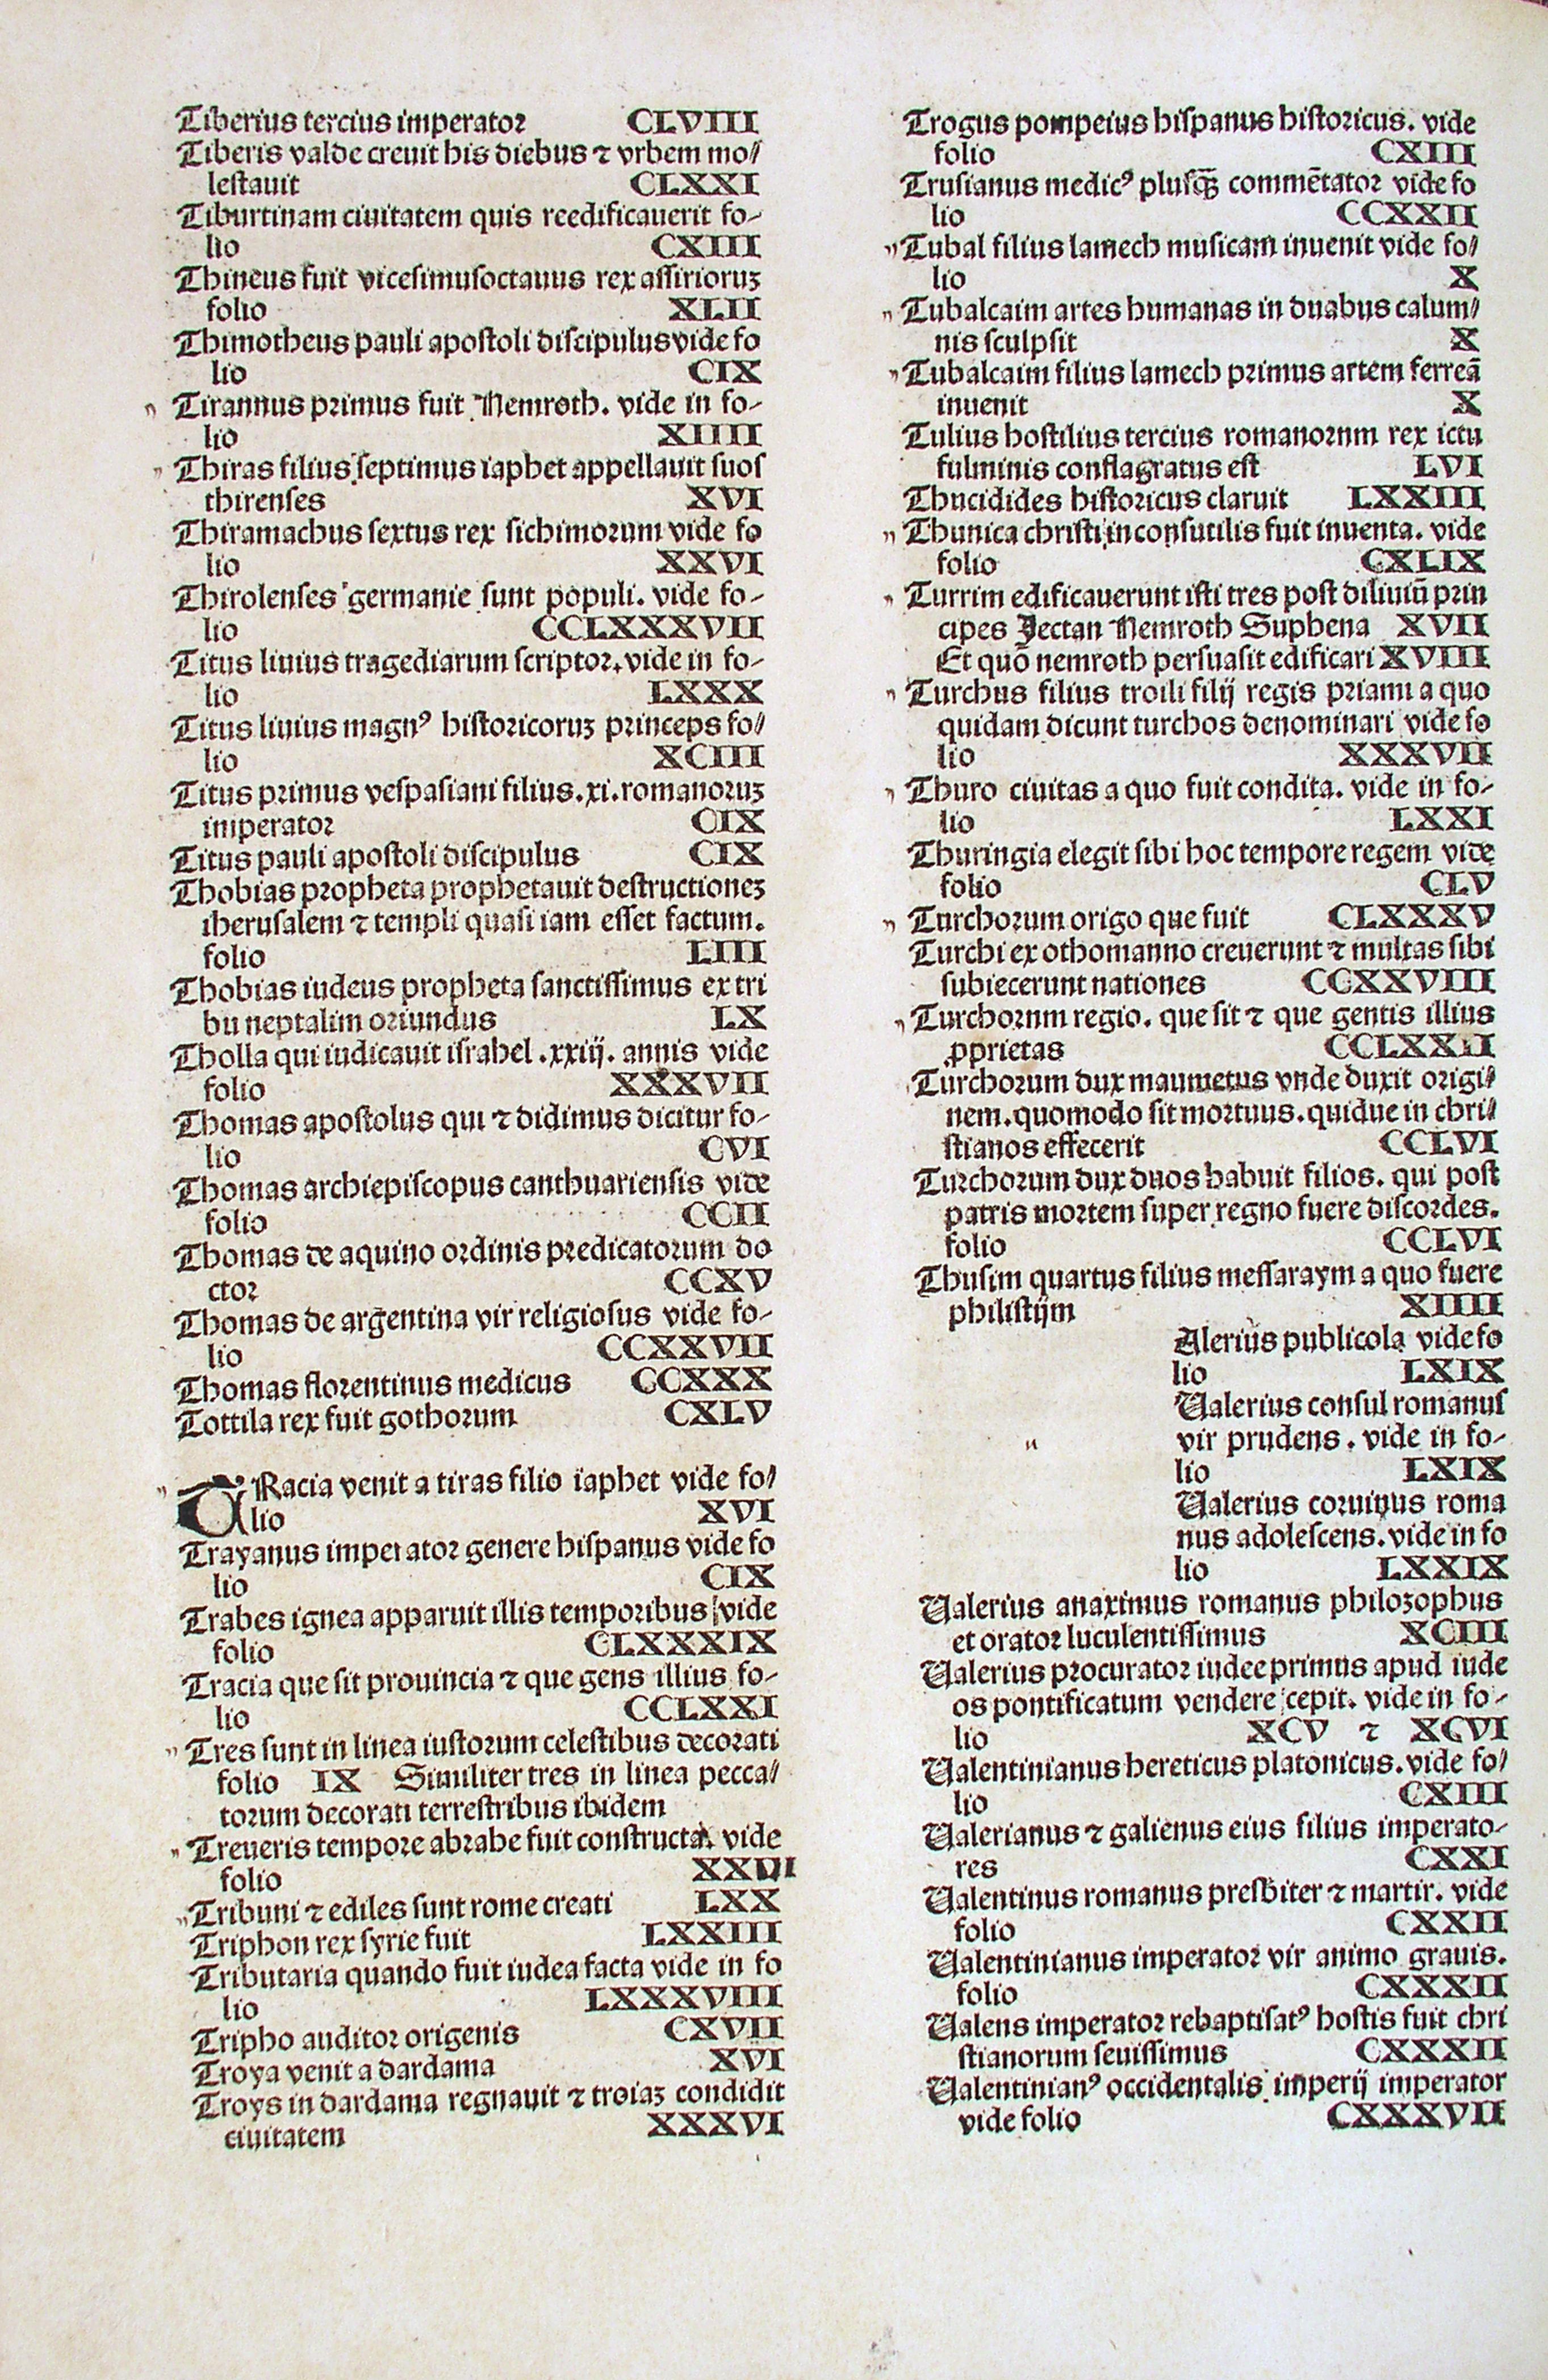 Tiberius tercius imperator CLVIII
Tiberis valde creuit his diebus ⁊ vrbem mo/
lestauit CLXXI
Tiburtinam ciuitatem quis reedificauerit fo-
lio CXIII
Thineus fuit vicesimusoctauus rex assirioruꝫ
folio XLII
Thimotheus pauli apostoli discipulus vide fo
lio CIX
Tirannus primus fuit Nemroth. vide in fo-
lio XIIII
Thiras filius septimus iaphet appellauit suos
thirenses XVI
Thiramachus sextus rex sichimorum vide fo
lio XXVI
Thirolenses germanie sunt populi. vide fo-
lio CCLXXXVII
Titus liuius tragediarum scriptor. vide in fo-
lio LXXX
Titus liuius magnꝰ historicoruꝫ princeps fo/
lio XCIII
Titus primus vespasiani filius .xi. romanoruꝫ
imperator CIX
Titus pauli apostoli discipulus CIX
Thobias propheta prophetauit destructioneꝫ
iherusalem ⁊ templi quasi iam esset factum.
folio LIII
Thobias iudeus propheta sanctissimus ex tri
bu neptalim oriundus LX
Tholla qui iudicauit israhel .xxiij. annis vide
folio XXXVII
Thomas apostolus qui ⁊ didimus dicitur fo-
lio CVI
Thomas archiepiscopus canthuariensis vide
folio CCII
Thomas de aquino ordinis predicatorum do
ctor CCXV
Thomas de argētina vir religiosus vide fo-
lio CCXXVII
Thomas florentinus medicus CCXXX
Tottila rex fuit gothorum CXLV
TRacia venit a tiras filio iaphet vide fo/
lio XVI
Trayanus imperator genere hispanus vide fo
lio CIX
Trabes ignea apparuit illis temporibus vide
folio CLXXXIX
Tracia que sit prouincia ⁊ que gens illius fo-
lio CCLXXI
Tres sunt in linea iustorum celestibus decorati
folio IX Similiter tres in linea pecca/
torum decorati terrestribus ibidem
Treueris tempore abrahe fuit constructa. vide
folio XXVI
Tribuni ⁊ ediles sunt rome creati LXX
Triphon rex syrie fuit LXXIII
Tributaria quando fuit iudea facta vide in fo
lio LXXXVIII
Tripho auditor origenis CXVII
Troya venit a dardama XVI
Troys in dardama regnauit ⁊ troiaꝫ condidit
ciuitatem XXXVI
Trogus pompeius hispanus historicus. vide
folio CXIII
Trusianus medicꝰ plusqꝫ commētator vide fo
lio CCXXII
Tubal filius lamech musicam inuenit vide fo/
lio X
Tubalcaim artes humanas in duabus calum/
nis sculpsit X
Tubalcaim filius lamech primus artem ferreā
inuenit X
Tulius hostilius tercius romanornm rex ictu
fulminis conflagratus est LVI
Thucidides historicus claruit LXXIII
Thunica christi inconsutilis fuit inuenta. vide
folio CXLIX
Turrim edificauerunt isti tres post diliuiū prin
cipes Jectan Nemroth Suphena XVII
Et quō nemroth persuasit edificari XVIII
Turchus filius troili filij regis priami a quo
quidam dicunt turchos denominari vide fo
lio XXXVII
Thuro ciuitas a quo fuit condita. vide in fo-
lio LXXI
Thuringia elegit sibi hoc tempore regem vide
folio CLV
Turchorum origo que fuit CLXXXV
Turchi ex othomanno creuerunt ⁊ multas sibi
subiecerunt nationes CCXXVIII
Turchornm regio. que sit ⁊ que gentis illius
ꝓprietas CCLXXII
Turchorum dux maumetus vnde duxit origi/
nem. quomodo sit mortuus. quidue in chri/
stianos effecerit CCLVI
Turchorum dux duos habuit filios. qui post
patris mortem super regno fuere discordes.
folio CCLVI
Thusim quartus filius messaraym a quo fuere
philistijm XIIII
Alerius publicola vide fo
lio LXIX
Ualerius consul romanus
vir prudens . vide in fo-
lio LXIX
Ualerius coruinus roma
nus adolescens. vide in fo
lio LXXIX
Ualerius anaximus romanus philozophus
et orator luculentissimus XCIII
Ualerius procurator iudee primus apud iude
os pontificatum vendere cepit. vide in fo-
lio XCV ⁊ XCVI
Ualentinianus hereticus platonicus. vide fo/
lio CXIII
Ualerianus ⁊ galienus eius filius imperato-
res CXXI
Ualentinus romanus presbiter ⁊ martir. vide
folio CXXII
Ualentinianus imperator vir animo grauis.
folio CXXXII
Ualens imperator rebaptisatꝰ hostis fuit chri
stianorum seuissimus CXXXII
Ualentinianꝰ occidentalis imperij imperator
vide folio CXXXVII